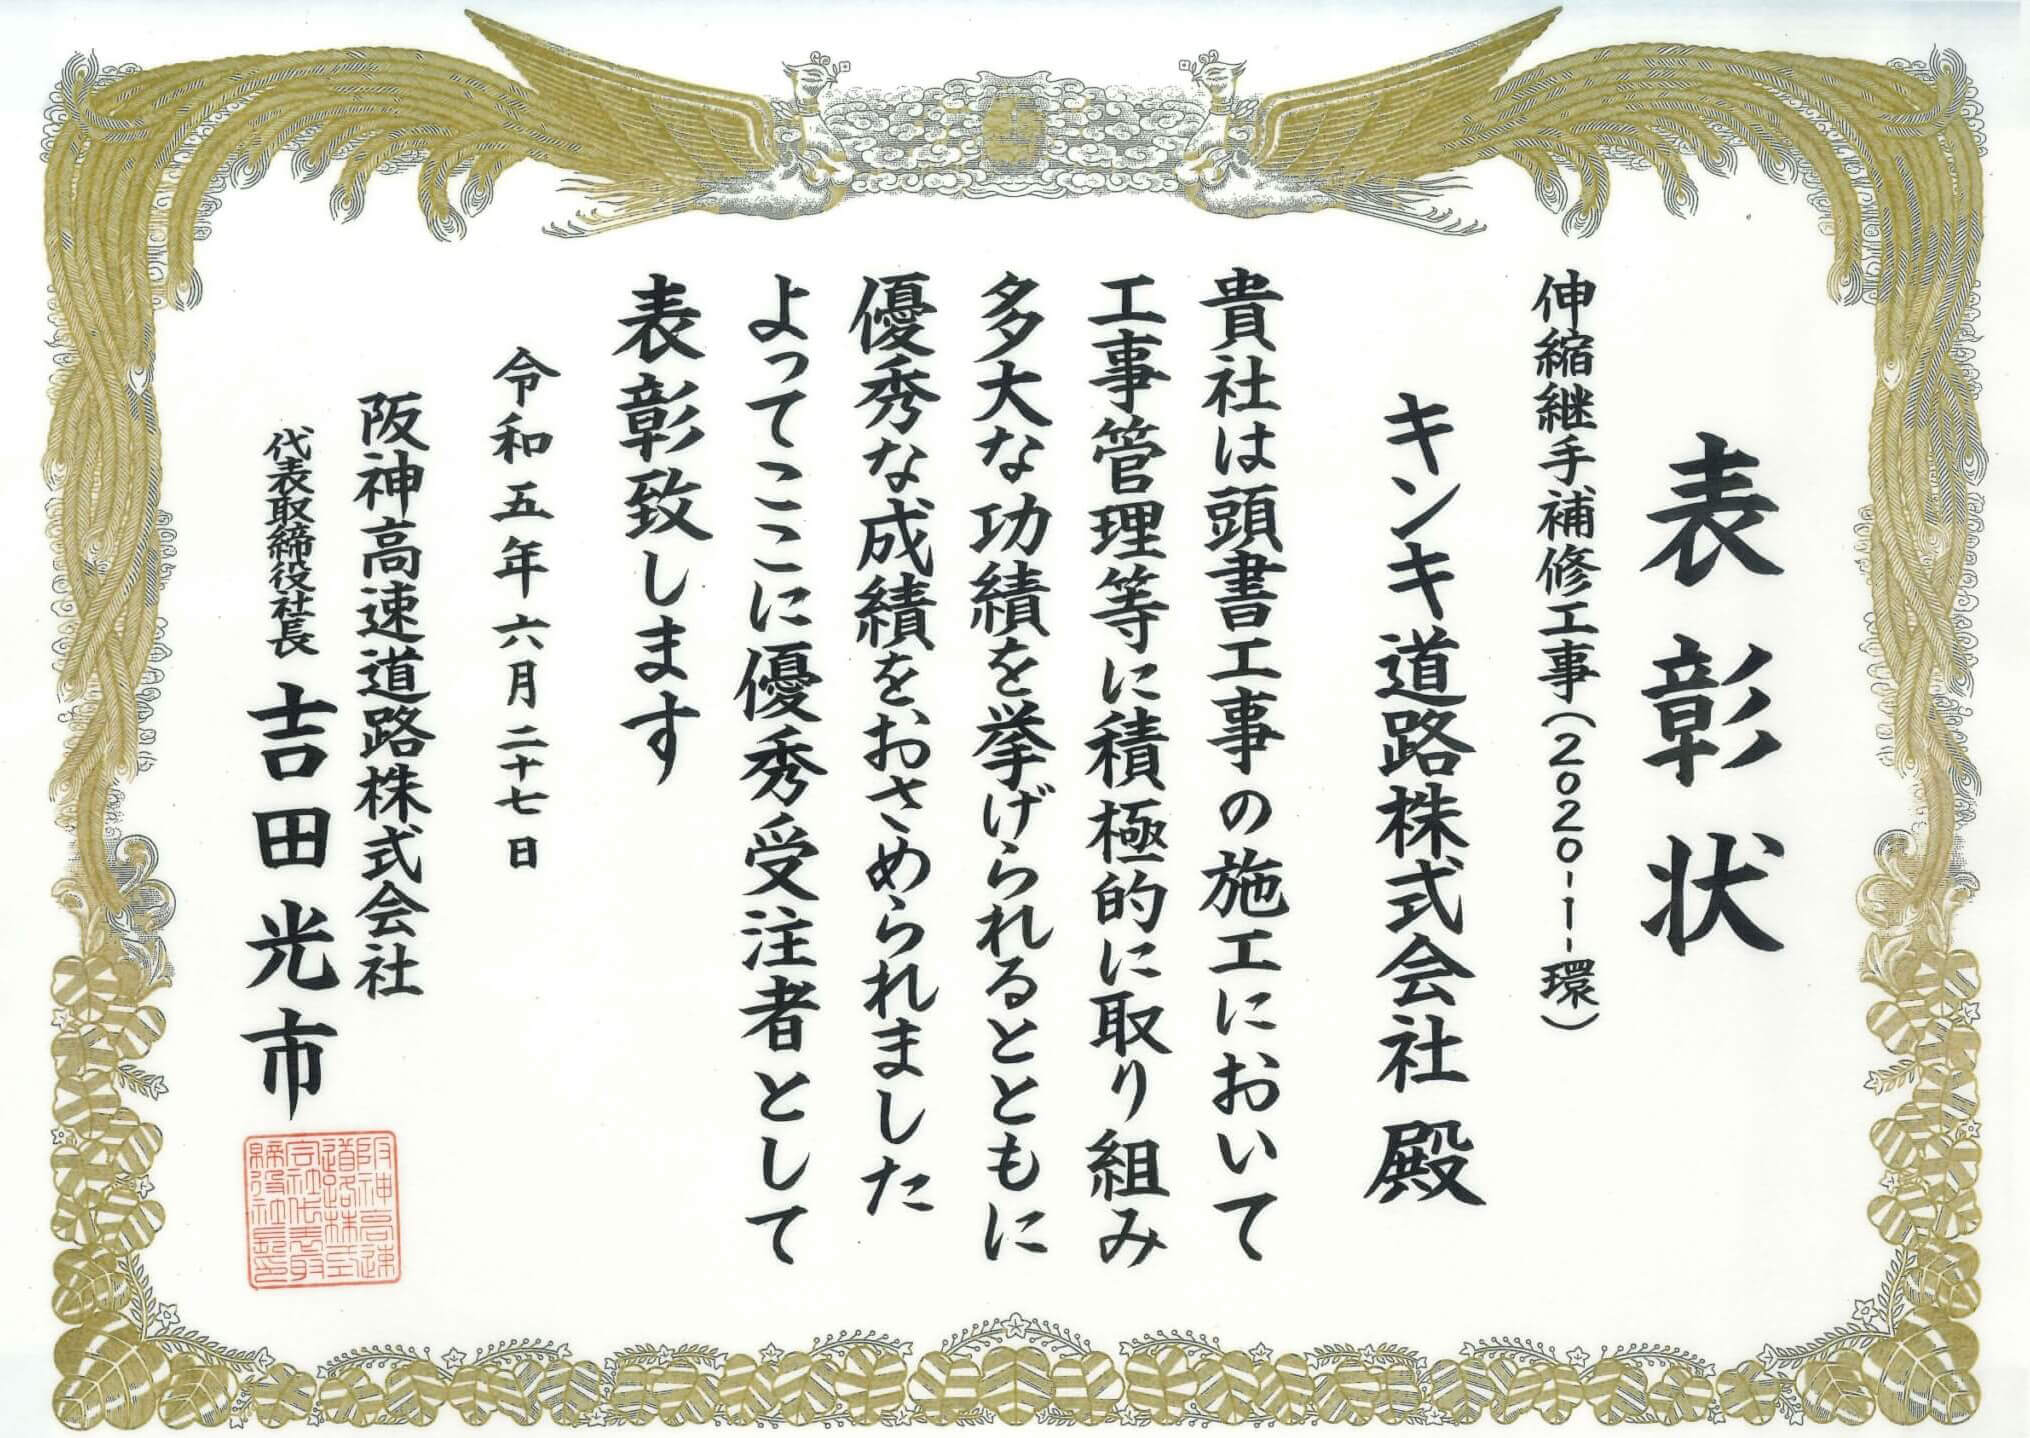 表彰状
伸縮継手補修工事(2020-1-環)
キンキ道路株式会社 殿
貴社は頭書工事の施工において
工事管理等に積極的に取り組み
多大な功績を挙げられるとともに
優秀な成績をおさめられました
よってここに優秀受注者として
表彰致します
令和五年六月二十七日
阪神高速道路株式会社
代表取締役社長 吉田光市
阪神高速
道路株式
会社代表取
締役社長印